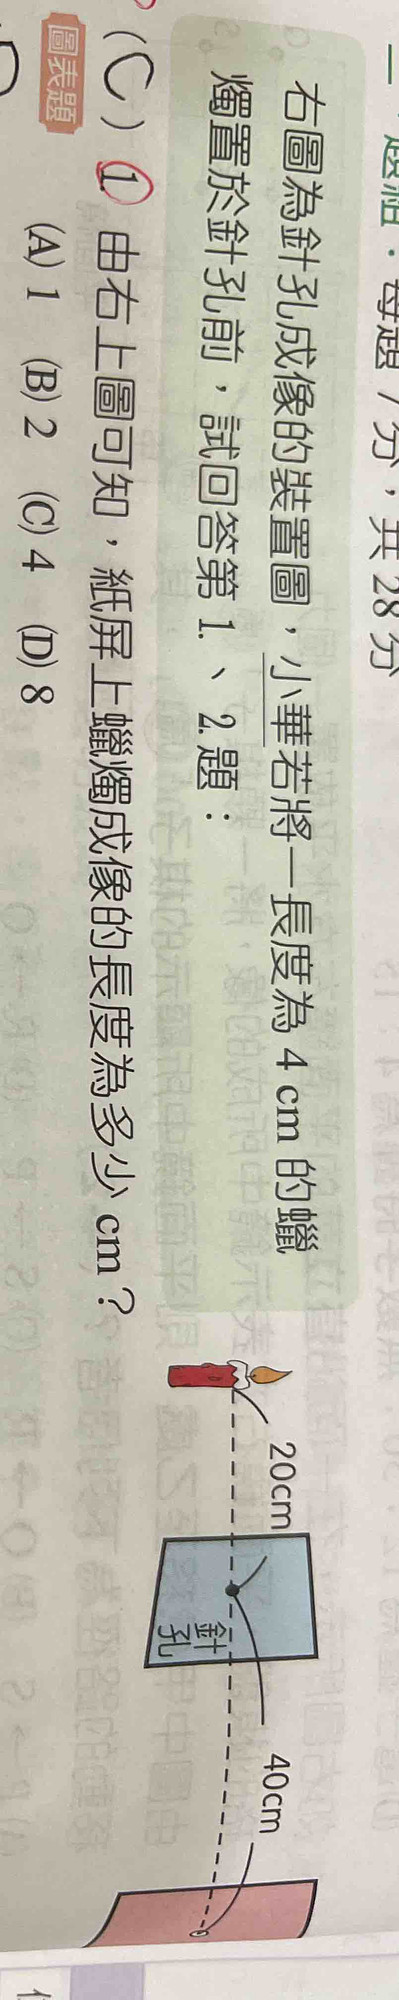 二、題組：每題7分，共28分
右圖為針孔成像的裝置圖，小華若將一長度為4 cm的蠟
燭置於針孔前，試回答第1.、2.題：
20cm
針孔
40cm
(C) 1. 由右上圖可知，紙屏上蠟燭成像的長度為多少cm？
圖表題
(A) 1 (B) 2 (C) 4 (D) 8